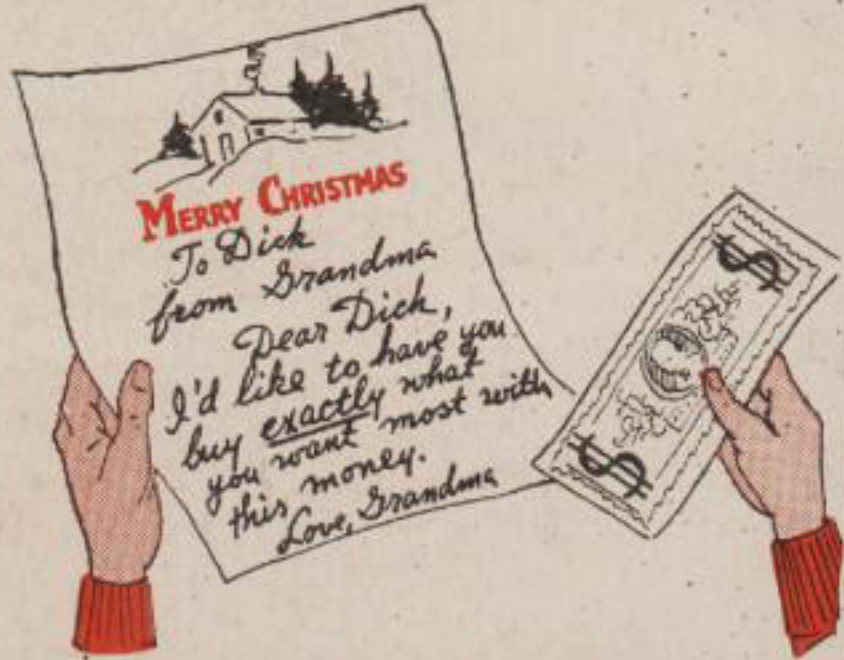 MERRY CHRISTMAS
To Dick
from Grandma
Dear Dick,
I'd like to have you
buy exactly what
you want most with
this money.
Love, Grandma
$
$